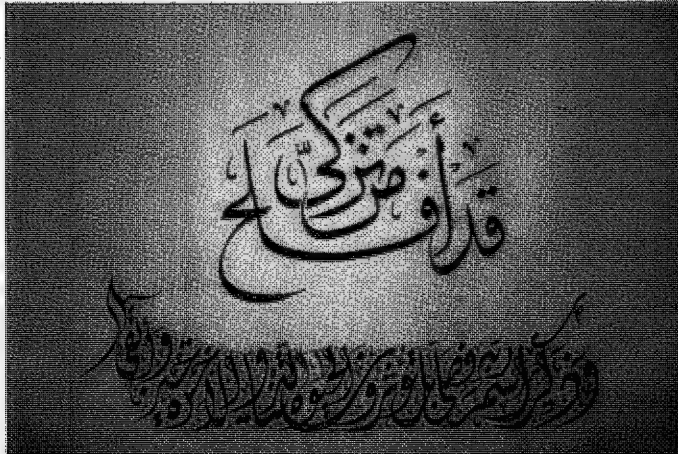 قد أفلح من تزكّى
وذكر اسم ربه فصلى بل تؤثرون الحيوة الدنيا والآخرة خير وأبقى